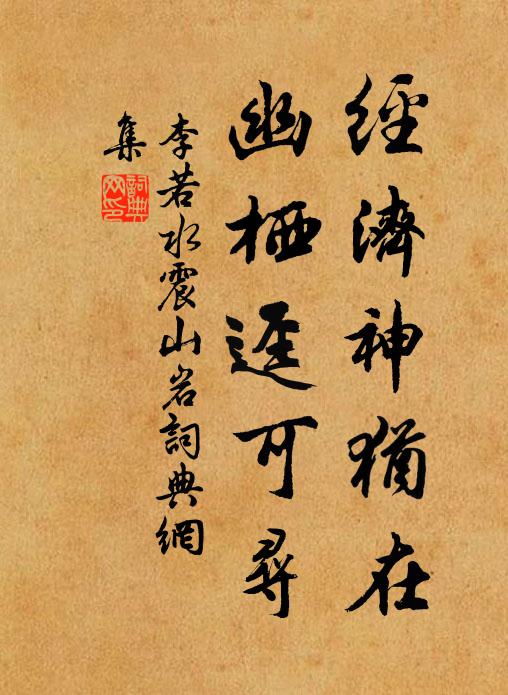 經濟神猶在
幽栖逕可尋
李若水震山岩詞典網
集
詞典网印